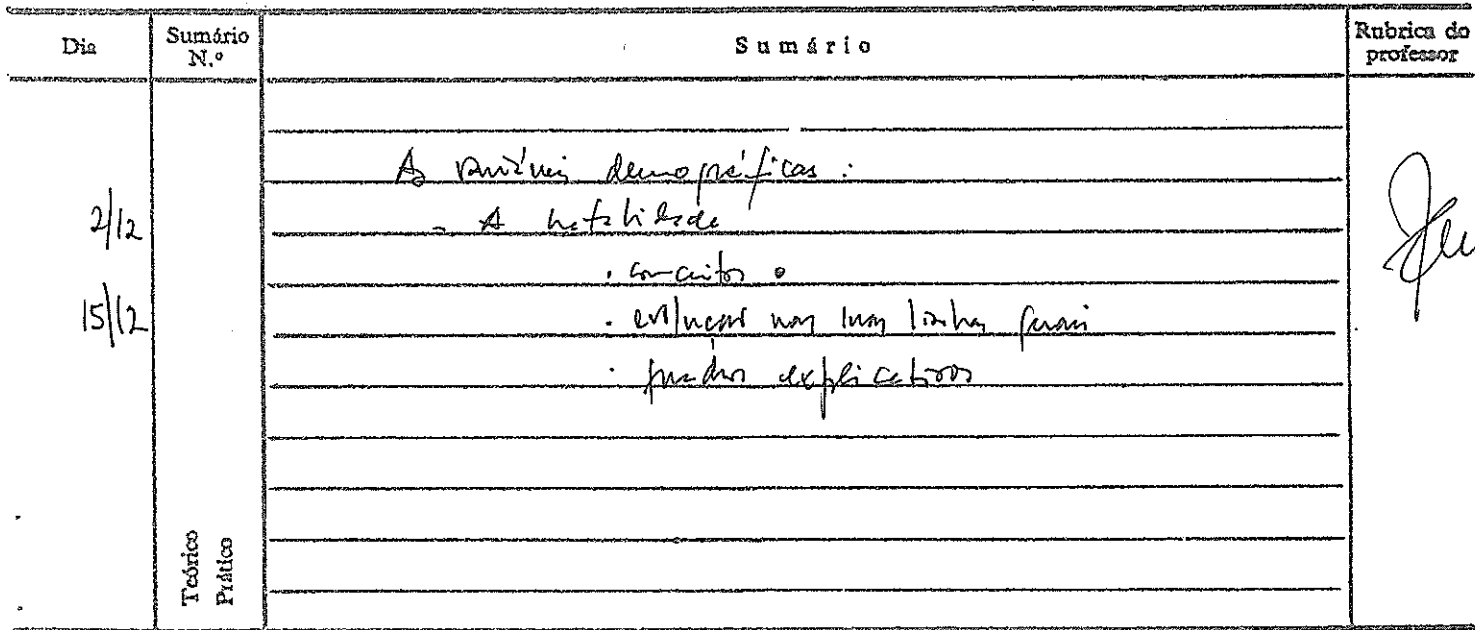 Dia Sumário N.º Sumário Rubrica do professor
As variáveis demográficas :
2/12 - A natalidade
. conceitos .
15/12 . evolução nas suas linhas gerais
. quadros explicativos
Teórico
Prático